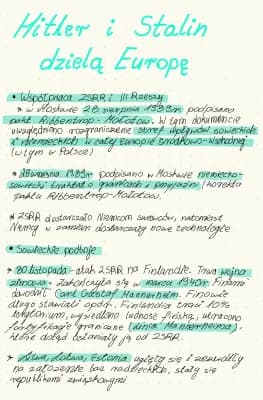 Hitler i Stalin
dzielą Europę
• Współpraca ZSRR i III Rzeszy
* w Moskwie 23 sierpnia 1939r. podpisano
pakt Ribbentrop-Mołotow. W tym dokumencie
uwzględniono rozgraniczenie stref wpływów sowieckich
i niemieckich w całej Europie Środkowo-Wschodniej
(w tym w Polsce)
* 28 września 1939r podpisano w Moskwie niemiecko-
sowiecki traktat o granicach i przyjaźni (korekta
paktu Ribbentrop-Mołotow.
* ZSRR dostarczało Niemcom surowców, natomiast
Niemcy w zamian dostarczały nowe technologie
• Sowieckie podboje
* 30 listopada - atak ZSRR na Finlandię. Trwa wojna
zimowa. zakończyła się w marcu 1940r. Finami
dowodził Carl Gustaf Mannerheim. Finowie
długo stawiali opór. Finlandia traci 10%
terytorium, wysiedlono ludność fińską, utracono
fortyfikacje graniczne (linia Mannerheima),
które dotąd osłaniały ją od ZSRR.
* Litwa, Łotwa, Estonia ugięły się i zezwoliły
na założenie baz radzieckich, stały się
republikami związkowymi